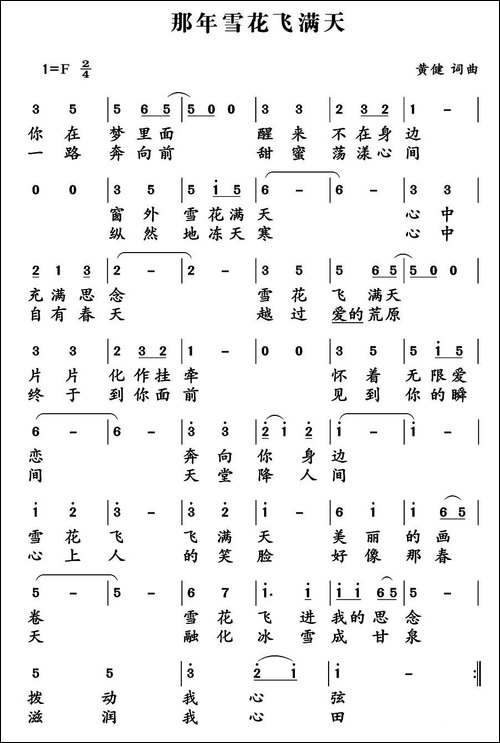 那年雪花飞满天
1=F 2/4 黄健 词曲
3 5 | 5 6 5 | 5 0 0 | 3 3 | 2 3 2 | 1 -
你在梦里面 醒来不在身边
一路奔向前 甜蜜荡漾心间
0 0 | 3 5 | 5 i 5 | 6 - | 6 - | 3 3
窗外雪花满天 心中
纵然地冻天寒 心中
2 1 3 | 2 - | 2 - | 3 5 | 5 6 5 | 5 0 0
充满思念 雪花飞满天
自有春天 越过爱的荒原
3 3 | 2 3 2 | 1 - | 0 0 | 3 5 | 5 i 5
片片化作挂牵 怀着无限爱
终于到你面前 见到你的瞬
6 - | 6 - | 3 3 | 2 i 2 | i - | i -
恋 奔向你身边
间 天堂降人间
i 2 | 3 - | 3 2 | 3 - | 6 i | i 6 5
雪花飞飞满天美丽的画
心上人的笑脸好像那春
5 - | 5 - | 6 7 | i· i | i i 6 5 | 5 5
卷 雪花飞进我的思念
天 融化冰雪成甘泉
5 5 | 3 | 2 i | i - :||
拨动我心弦
滋润我心田